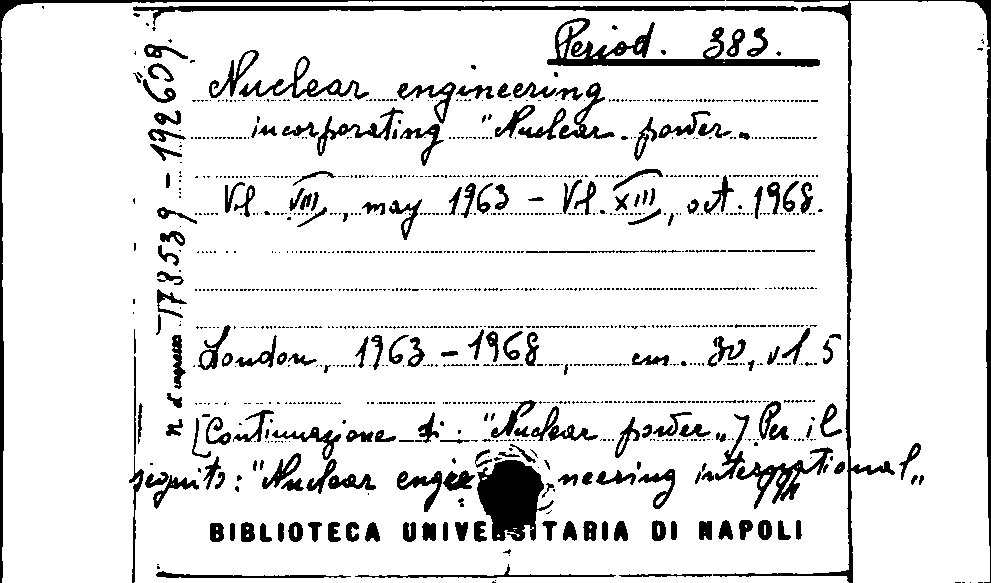 Period. 383.
Nuclear engineering
incorporating "Nuclear power"
Vl. VIII, may 1963 - Vl. XIII, oct. 1968.
London, 1963-1968, cm. 30, vl 5
[Continuazione di: "Nuclear power"] Per il
seguito: "Nuclear engineering international"
BIBLIOTECA UNIVERSITARIA DI NAPOLI
n. d'ingresso 178539-192609